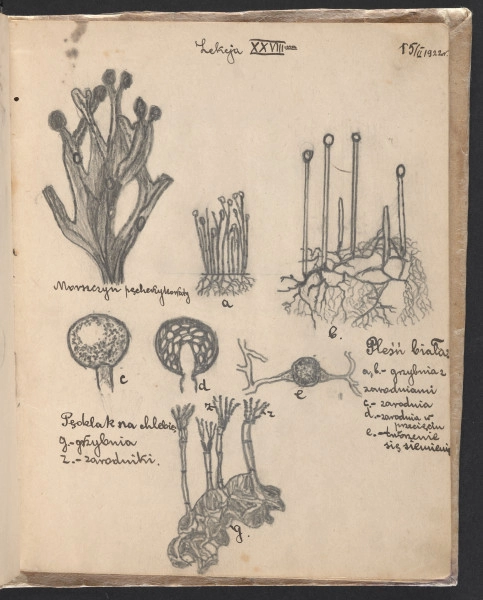 Lekcja XXVIII-ma
15/II 1922r.
Morszczyn pęcherzykowaty
a
b.
c
d
e
Pleśń biała:
a, b - grzybnia z
zarodniami
c. - zarodnia
d. - zarodnia w
przecięciu
e. - tworzenie
się
Pędzlak na chlebie
g. - grzybnia
z. - zarodniki.
z
z
g.